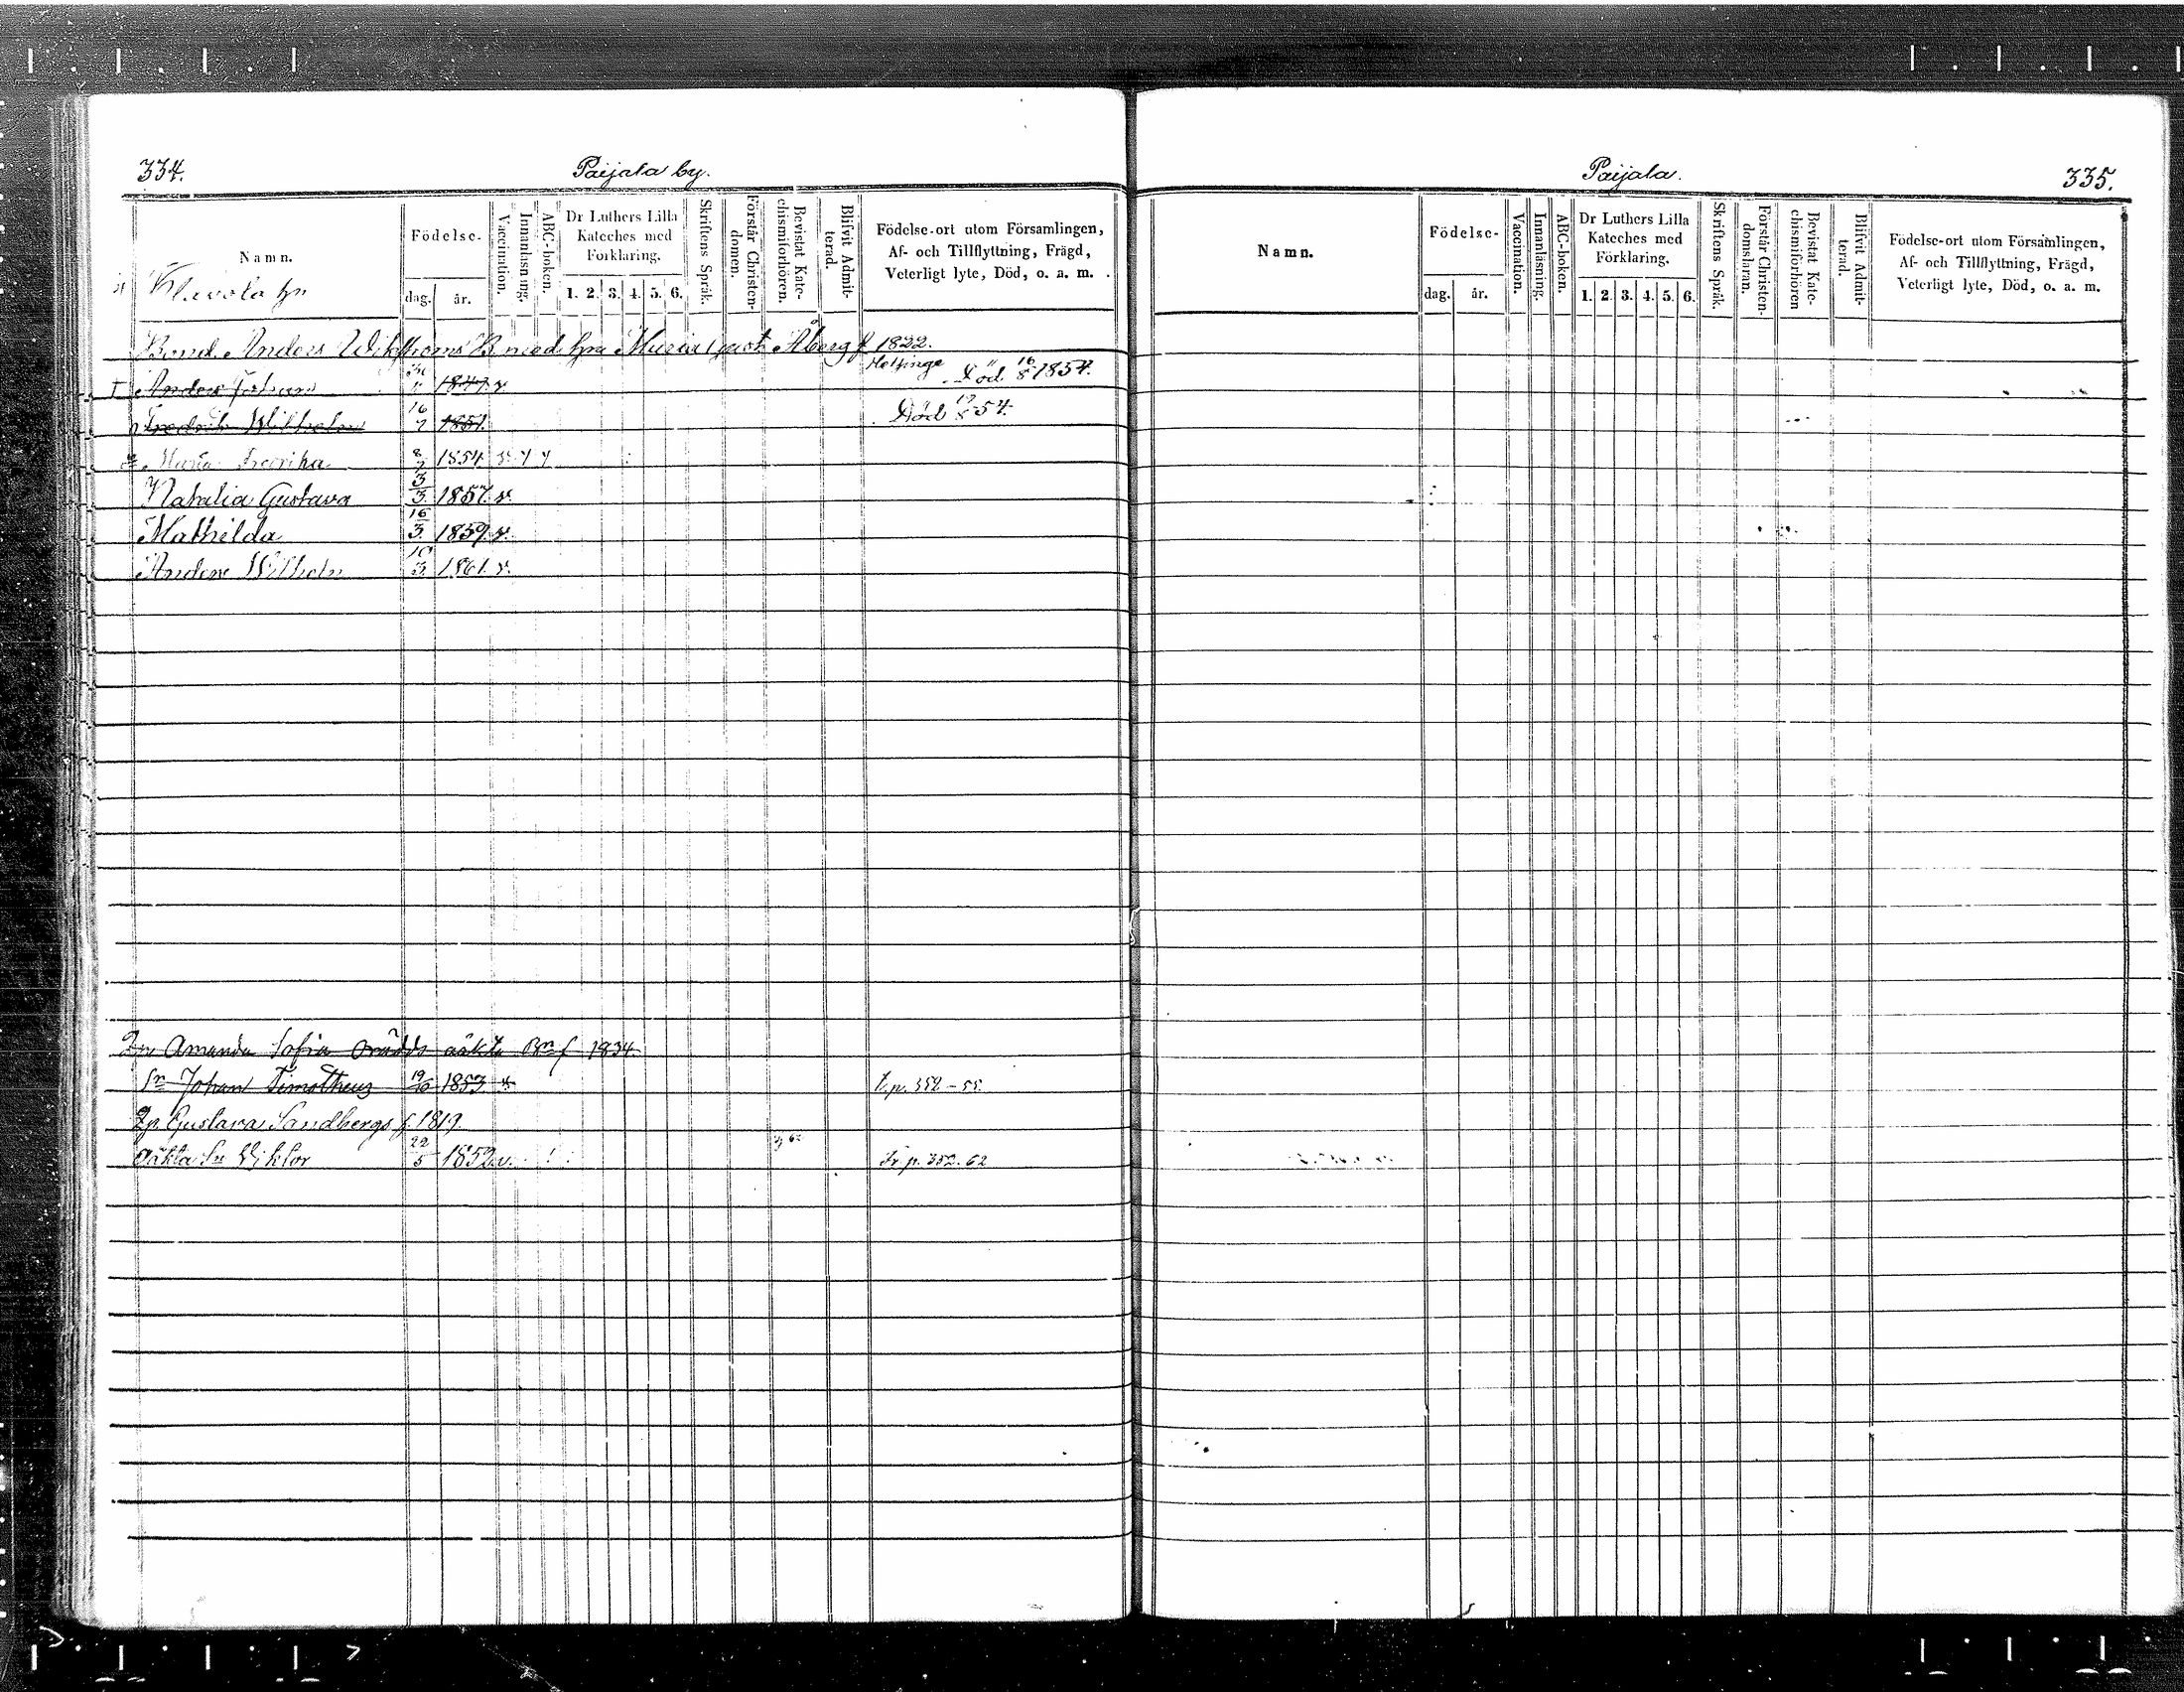 334. Paijala by.
Namn.
Födelse-
dag. år.
Vaccination.
Innanläsning.
ABC-boken.
Dr Luthers Lilla
Kateches med
Förklaring.
1. 2. 3. 4. 5. 6.
Skriftens Språk.
Förstår Christen-
domen.
Bevistat Kate-
chismiförhören.
Blifvit Admit-
terad.
Födelse-ort utom Församlingen,
Af- och Tillflyttning, Frägd,
Veterligt lyte, Död, o. a. m.
Bond. Anders Wikströms B. med hu Maria Åberg f 1822.
Anders Johan 1847. v. Helsinge Död 16/8 1854.
Fredrik Wilhelm 16/7 1851. Död 54.
Maria Fredrika 8/2 1854 v.
Natalia Gustava 3/3 1857. v.
Mathilda 16/3 1859. v.
Anders Wilhelm 10/3 1861. v.
Amanda Sofia oäkta f 1834
Sn Johan Timotheus 19/6 1853 v t.p. 352-55.
Gustava Sandbergs f. 1819.
Oäkta Sn Viktor 22/5 1852 v. Fr. p. 352. 62
Paijala. 335.
Namn.
Födelse-
dag. år.
Vaccination.
Innanläsning.
ABC-boken.
Dr Luthers Lilla
Kateches med
Förklaring.
1. 2. 3. 4. 5. 6.
Skriftens Språk.
Förstår Christen-
domsläran.
Bevistat Kate-
chismiförhören
Blifvit Admit-
terad.
Födelse-ort utom Församlingen,
Af- och Tillflyttning, Frägd,
Veterligt lyte, Död, o. a. m.